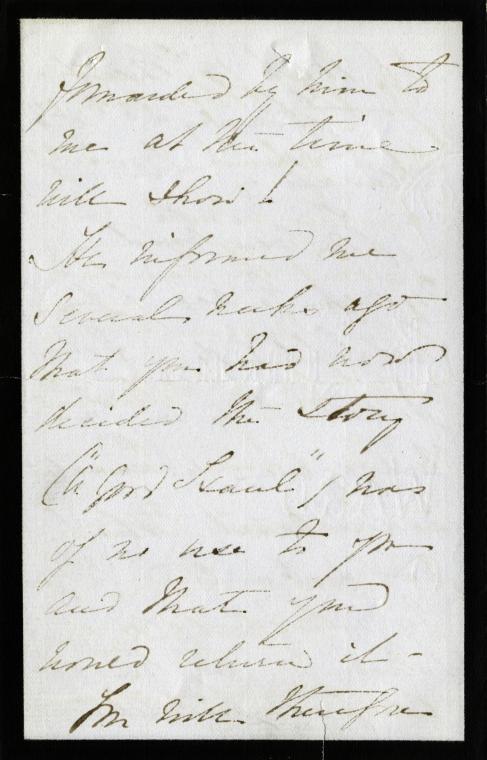 forwarded by him to
me at the time
will show!
He informed me
several weeks ago
that you had now
decided the story
("A Good Haul") was
of no use to you
and that you
would return it -
You will therefore